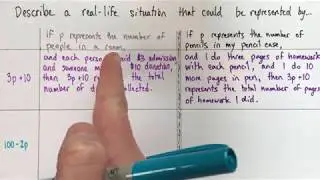 Describe a real-life situation that could be represented by...
if p represents the number of
people in a room,
if p represents the number of
pencils in my pencil case,
3p+10
and each person paid $3 admission
and someone $10 donation,
then 3p+10 the total
number of collected.
and I do three pages of homework
with each pencil, and I do 10
more pages in pen, then 3p+10
represents the total pages of
homework I did.
100-2p